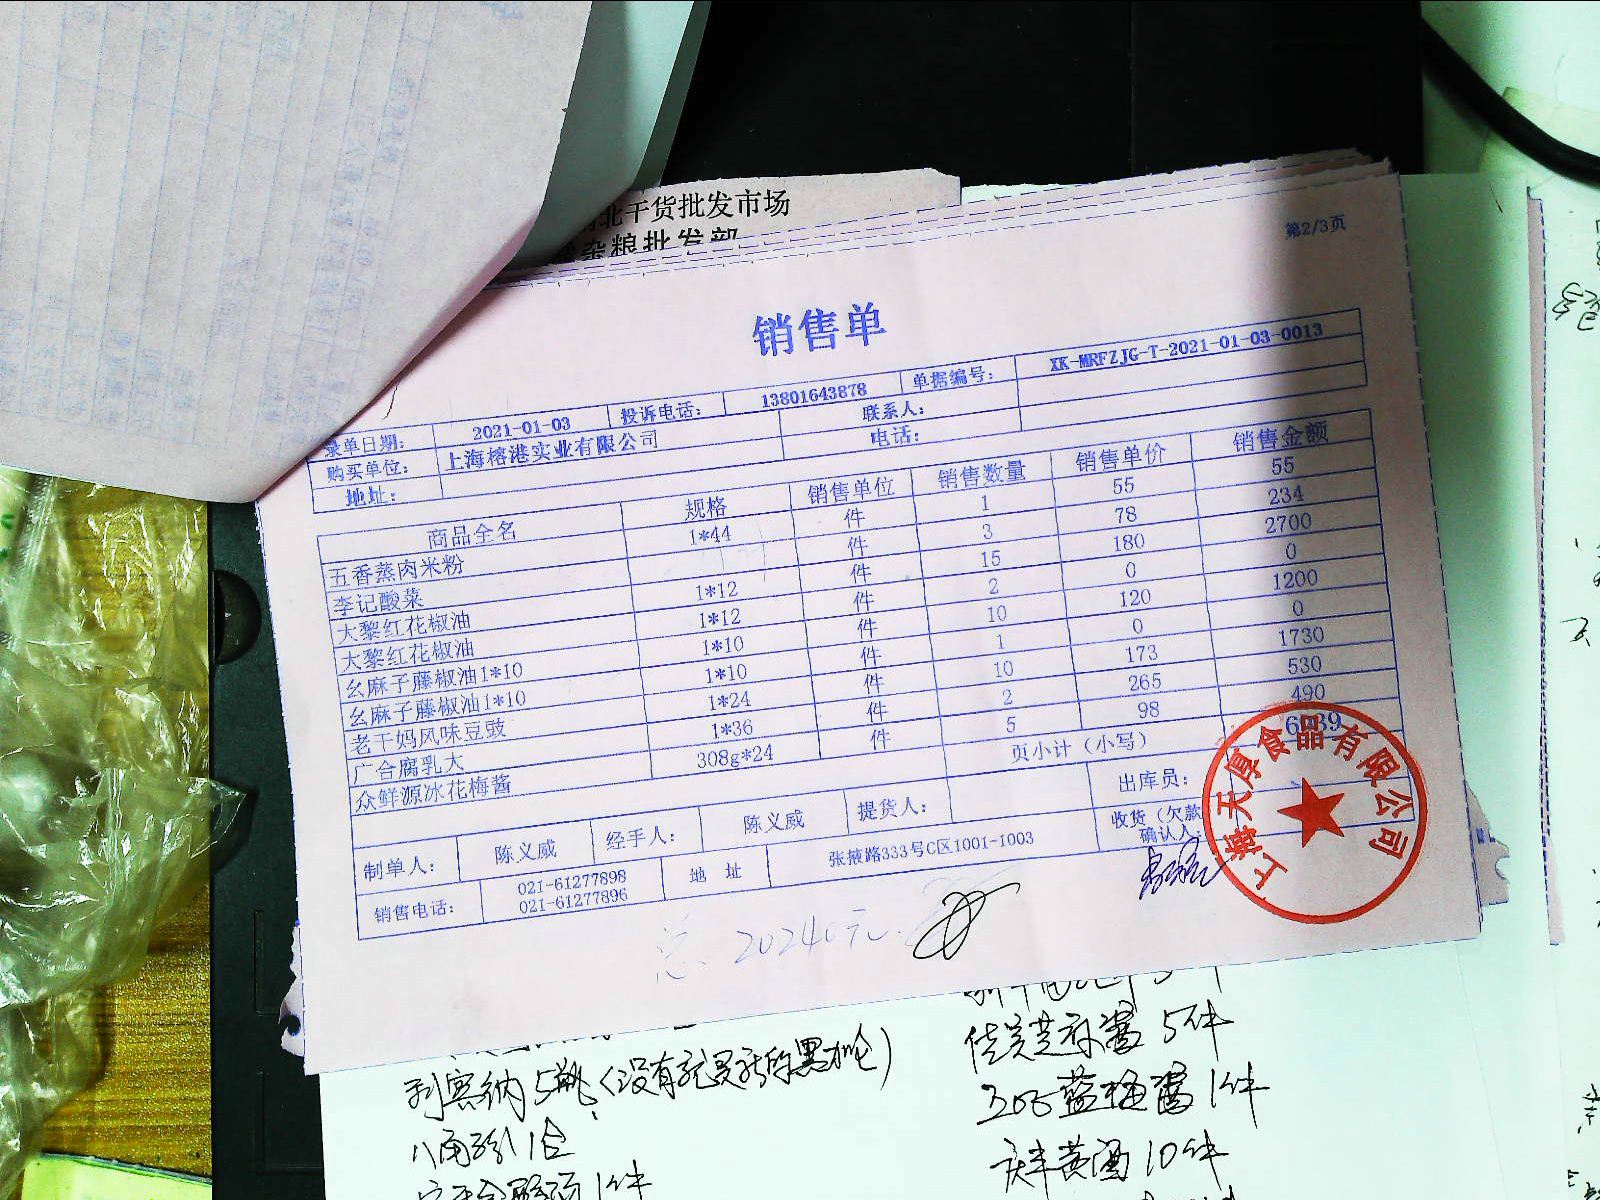 北干货批发市场
杂粮批发部
第2/3页
销售单
录单日期: 2021-01-03 投诉电话: 13801643878 单据编号: XK-MRFZJG-T-2021-01-03-0013
购买单位: 上海榕港实业有限公司 联系人:
地址: 电话:
商品全名 规格 销售单位 销售数量 销售单价 销售金额
五香蒸肉米粉 1*44 件 1 55 55
李记酸菜 件 3 78 234
大黎红花椒油 1*12 件 15 180 2700
大黎红花椒油 1*12 件 2 0 0
幺麻子藤椒油1*10 1*10 件 10 120 1200
幺麻子藤椒油1*10 1*10 件 1 0 0
老干妈风味豆豉 1*24 件 10 173 1730
广合腐乳大 1*36 件 2 265 530
众鲜源冰花梅酱 308g*24 件 5 98 490
页小计（小写） 6939
制单人: 陈义威 经手人: 陈义威 提货人: 出库员:
销售电话: 021-61277898 021-61277896 地 址 张掖路333号C区1001-1003 收货（欠款 确认人:
上海天厚食品有限公司
总 20240元
利宾纳5瓶(没有就买新的黑加仑)
佐岸芝麻酱 5件
八角粉1合
蓝梅酱1件
黄酒10件
1件